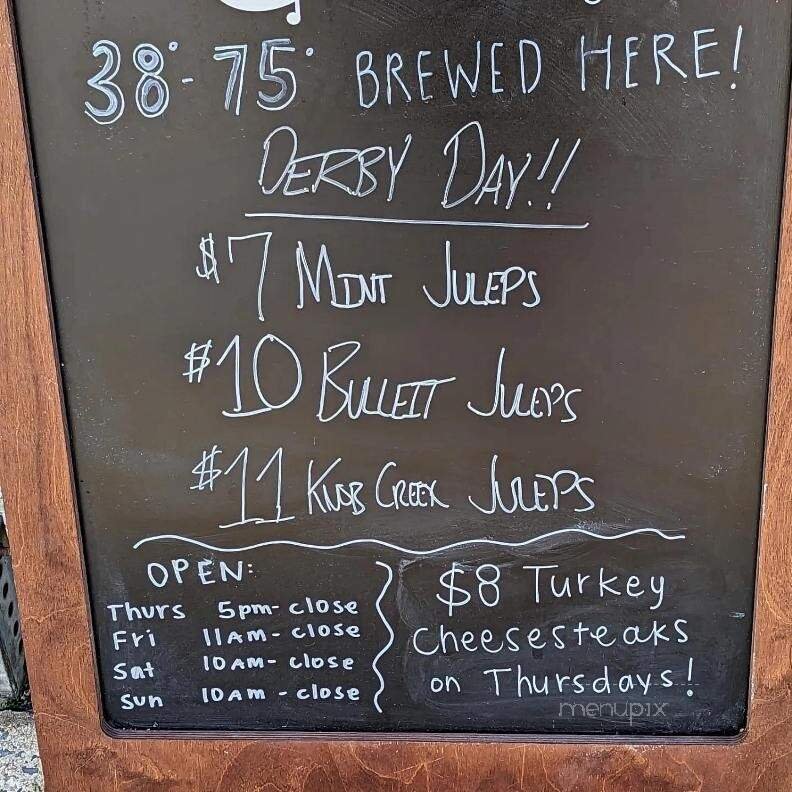 38°-75° BREWED HERE!
DERBY DAY!!
$7 MINT JULEPS
$10 BULLEIT JULEPS
$11 KNOB CREEK JULEPS
OPEN:
Thurs 5pm-close
Fri 11AM-close
Sat 10AM-close
Sun 10Am-close
$8 Turkey
Cheesesteaks
on Thursdays!
menupix